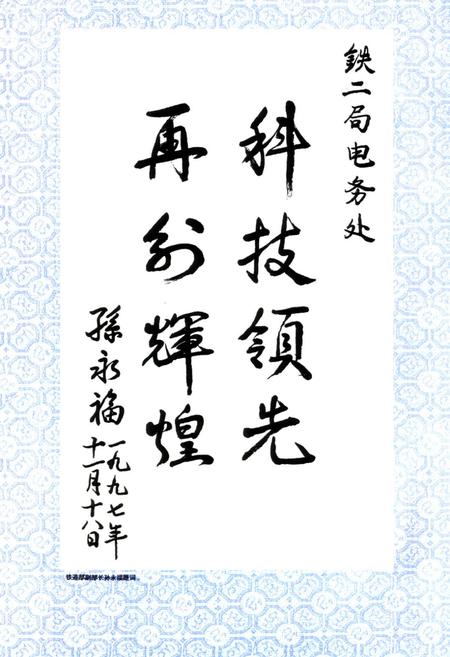 鉄二局电务处
科技領先
再创輝煌
孫永福
一九九七年
十一月十八日
铁道部副部长孙永福题词。